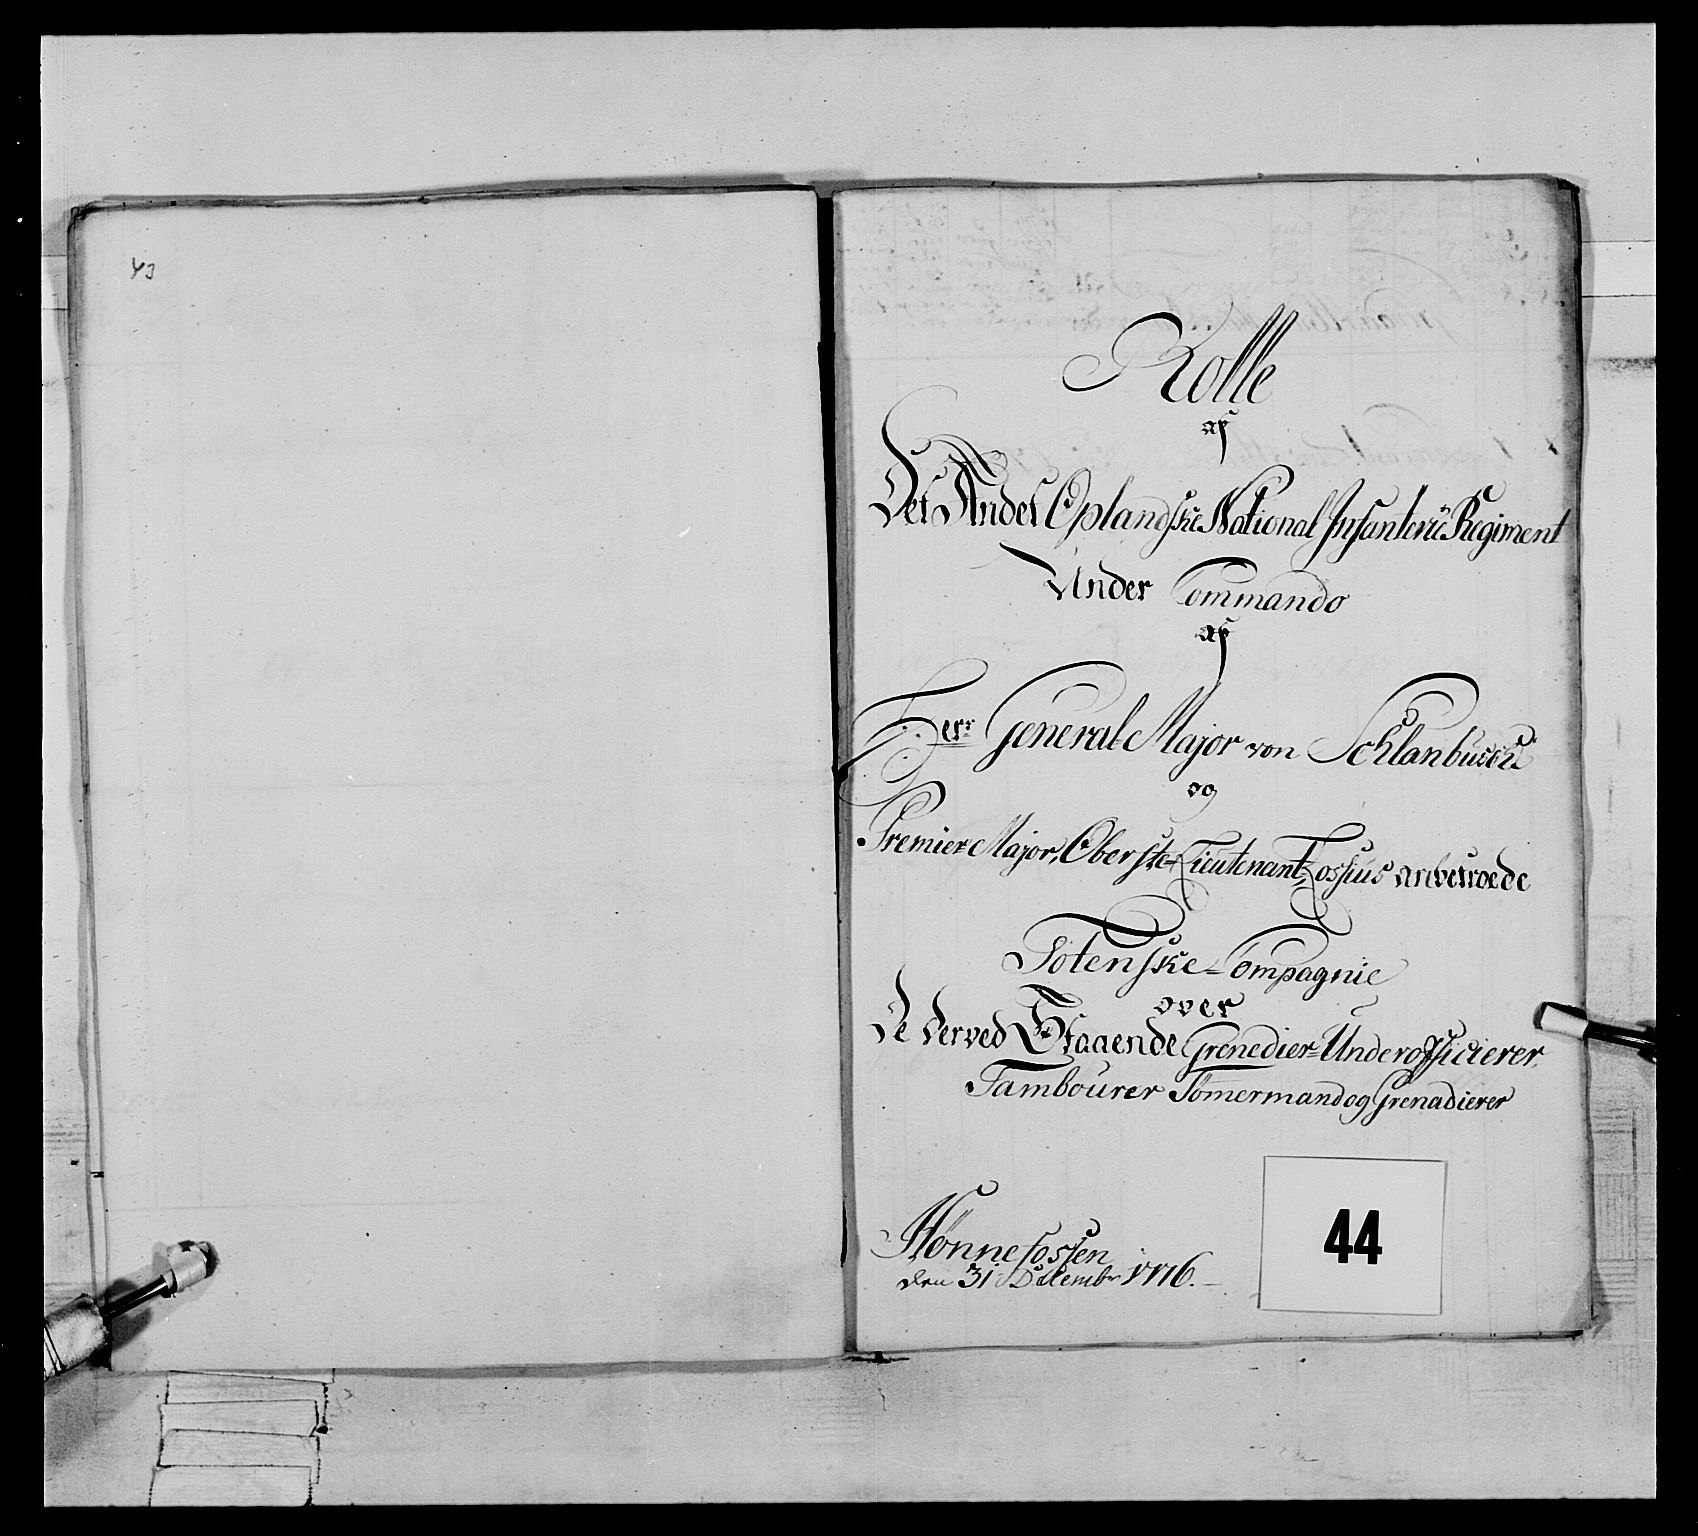 43
Rolle
af
Det Andet Oplandske National Infanterie Regiment
Under Commando
af
Herr General Major von Schlanbusch
og
Premier Major, Oberste-Lieutenant, Lossius anbetroede
Totenske-Compagnie
over
De Derved Staaende Grenedier-Underofficierer,
Tambourer Tømermand og Grenadierer
Hønnefossen
den 31 Decembr 1776.
44